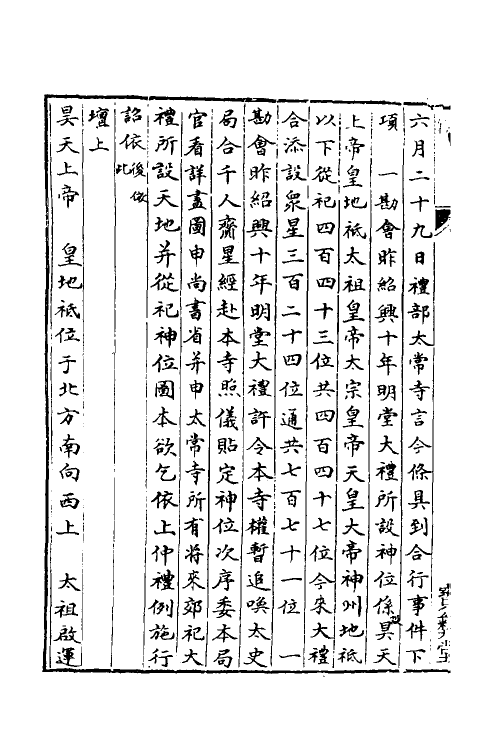 六月二十九日禮部太常寺言今條具到合行事件下
項　一勘會昨紹興十年明堂大禮所設神位係設昊天
上帝皇地祇太祖皇帝太宗皇帝天皇大帝神州地祇
以下從祀四百四十三位共四百四十七位今來大禮
合添設衆星三百二十四位通共七百七十一位　一
勘會昨紹興十年明堂大禮許令本寺權暫追喚太史
局合千人齋星經赴本寺照儀貼定神位次序委本局
官看詳畫圖申尚書省并申太常寺所有將來郊祀大
禮所設天地并從祀神位圖本欲乞依上件禮例施行
詔依後倣此
壇上
昊天上帝　皇地祇位于北方南向西上　太祖啟運